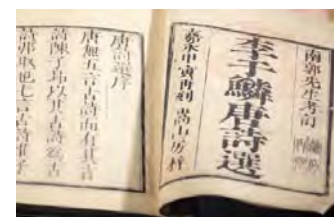 南郭先生考訂
李于鱗唐詩選
嘉永甲寅再刻 嵩山房梓
唐詩選序
唐無五言古詩而有其古
詩陳子昂以其古詩爲古
詩弗取也七言古詩唯子